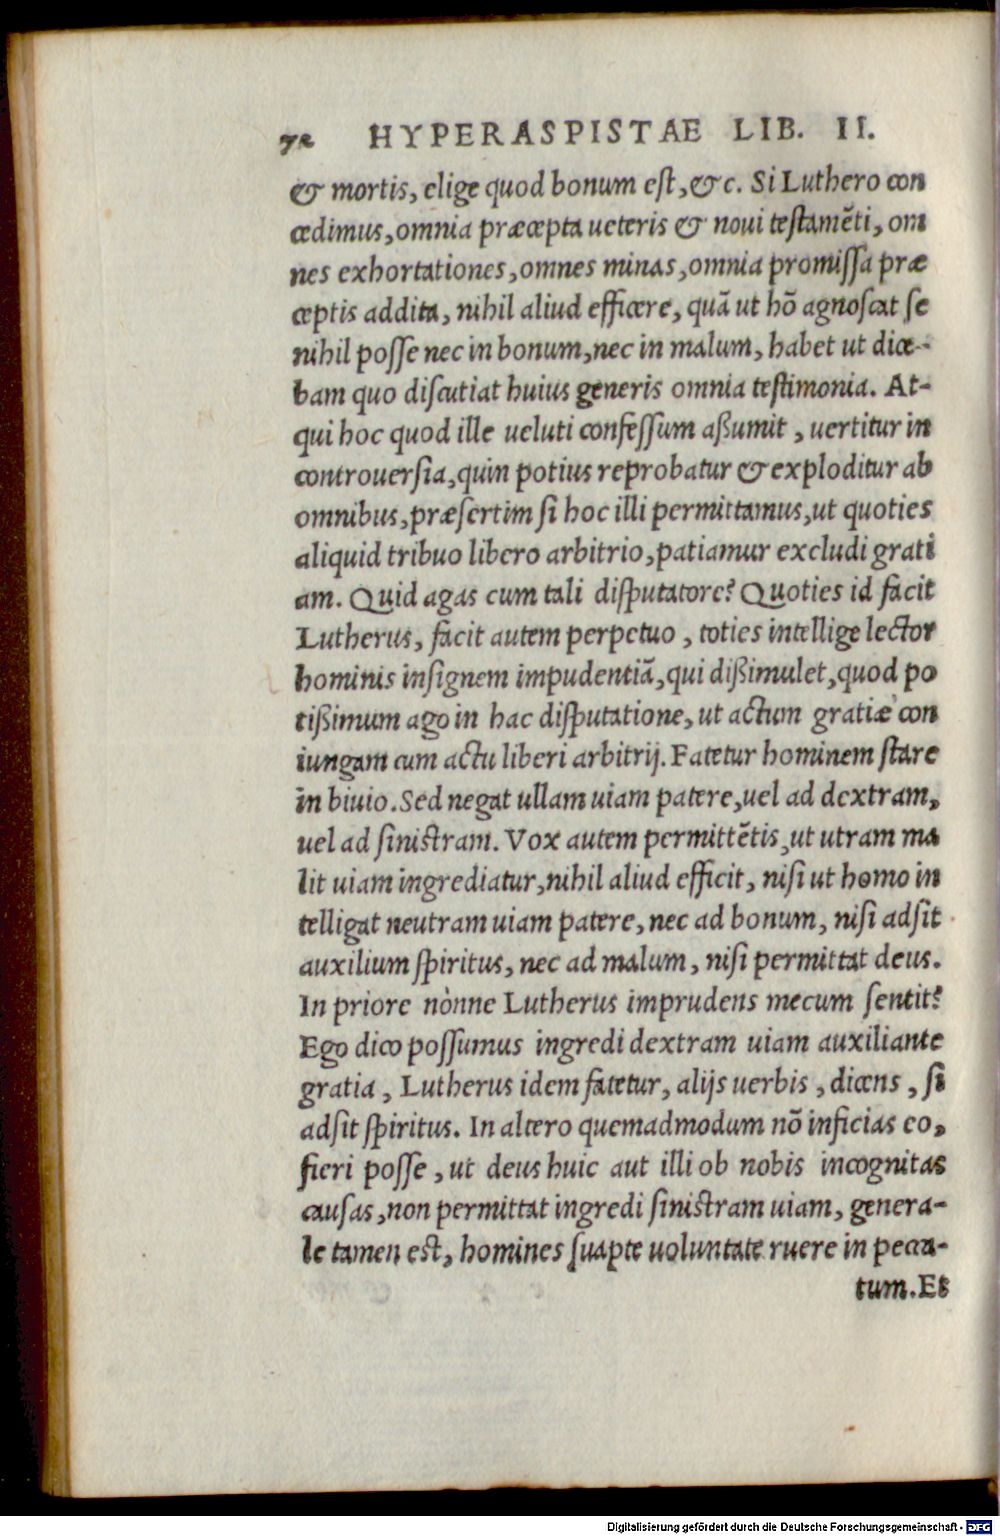 72 HYPERASPISTAE LIB. II.
& mortis, elige quod bonum est, &c. Si Luthero con
cedimus, omnia præcepta ueteris & noui testamẽti, om
nes exhortationes, omnes minas, omnia promissa præ
ceptis addita, nihil aliud efficere, quã ut hõ agnoscat se
nihil posse nec in bonum, nec in malum, habet ut dice-
bam quo discutiat huius generis omnia testimonia. At-
qui hoc quod ille ueluti confessum aßumit, uertitur in
controuersia, quin potius reprobatur & exploditur ab
omnibus, præsertim si hoc illi permittamus, ut quoties
aliquid tribuo libero arbitrio, patiamur excludi grati
am. Quid agas cum tali disputatore? Quoties id facit
Lutherus, facit autem perpetuo, toties intellige lector
hominis insignem impudentiã, qui dißimulet, quod po
tißimum ago in hac disputatione, ut actum gratiæ con
iungam cum actu liberi arbitrij. Fatetur hominem stare
in biuio. Sed negat ullam uiam patere, uel ad dextram,
uel ad sinistram. Vox autem permittẽtis, ut utram ma
lit uiam ingrediatur, nihil aliud efficit, nisi ut homo in
telligat neutram uiam patere, nec ad bonum, nisi adsit
auxilium spiritus, nec ad malum, nisi permittat deus.
In priore nònne Lutherus imprudens mecum sentit?
Ego dico possumus ingredi dextram uiam auxiliante
gratia, Lutherus idem fatetur, alijs uerbis, dicens, si
adsit spiritus. In altero quemadmodum nõ inficias eo,
fieri posse, ut deus huic aut illi ob nobis incognitas
causas, non permittat ingredi sinistram uiam, genera-
le tamen est, homines suapte uoluntate ruere in pecca-
tum. Et
Digitalisierung gefördert durch die Deutsche Forschungsgemeinschaft - DFG